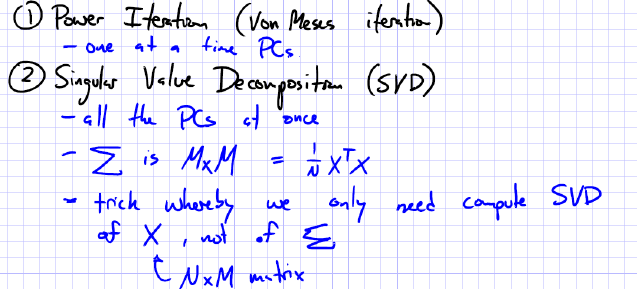 ① Power Iteration (Von Meses iteration)
- one at a time PCs.
② Singular Value Decomposition (SVD)
- all the PCs at once
- Σ is M×M = 1/N XᵀX
- trick whereby we only need compute SVD
of X, not of Σ
N×M matrix